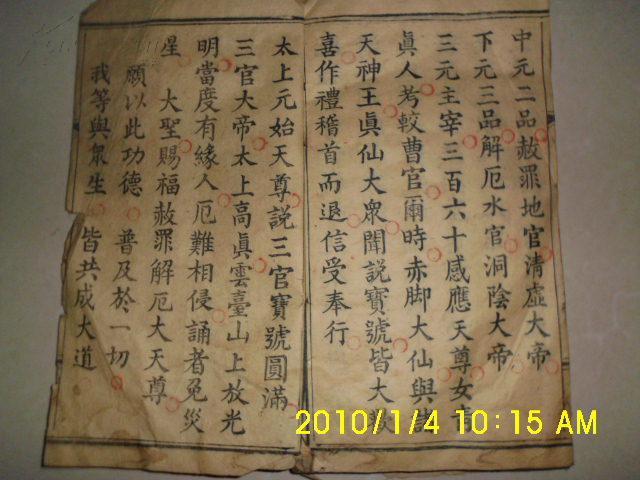 中元二品赦罪地官清虛大帝
下元三品解厄水官洞陰大帝
三元主宰三百六十感應天尊
眞人考較曹官爾時赤脚大仙與
天神王眞仙大衆聞說寶號皆大歡
喜作禮稽首而退信受奉行
太上元始天尊說三官寶號圓滿
三官大帝太上高眞雲臺山上放光
明當度有緣人厄難相侵誦者免災
星 大聖賜福赦罪解厄大天尊
願以此功德 普及於一切
我等與衆生 皆共成大道
2010/1/4 10:15 AM